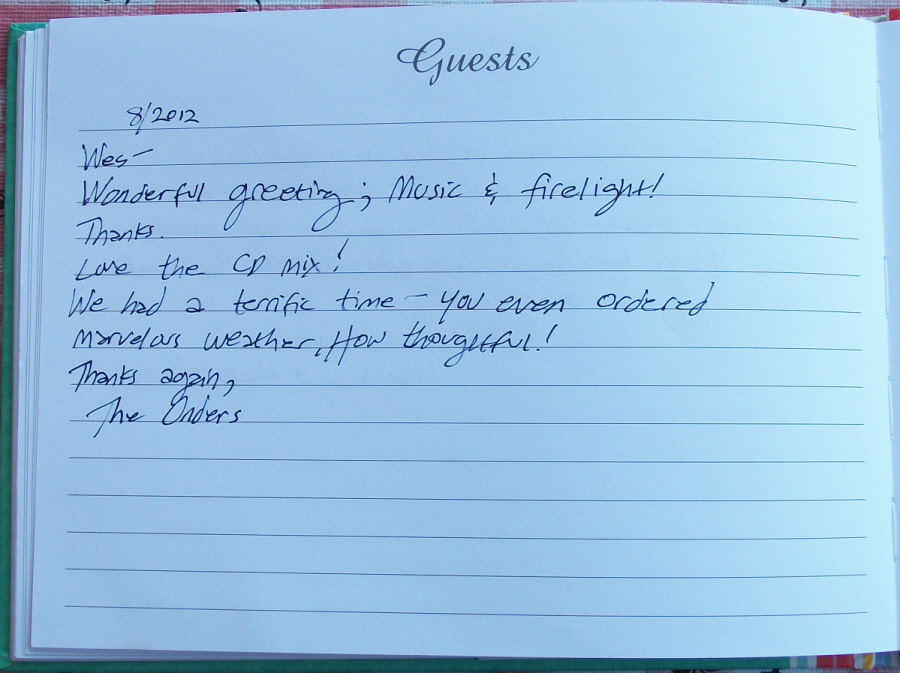 Guests
8/2012
Wes—
Wonderful greeting; Music & firelight!
Thanks.
Love the CD mix!
We had a terrific time — you even ordered
marvelous weather, How thoughtful!
Thanks again,
The Onders